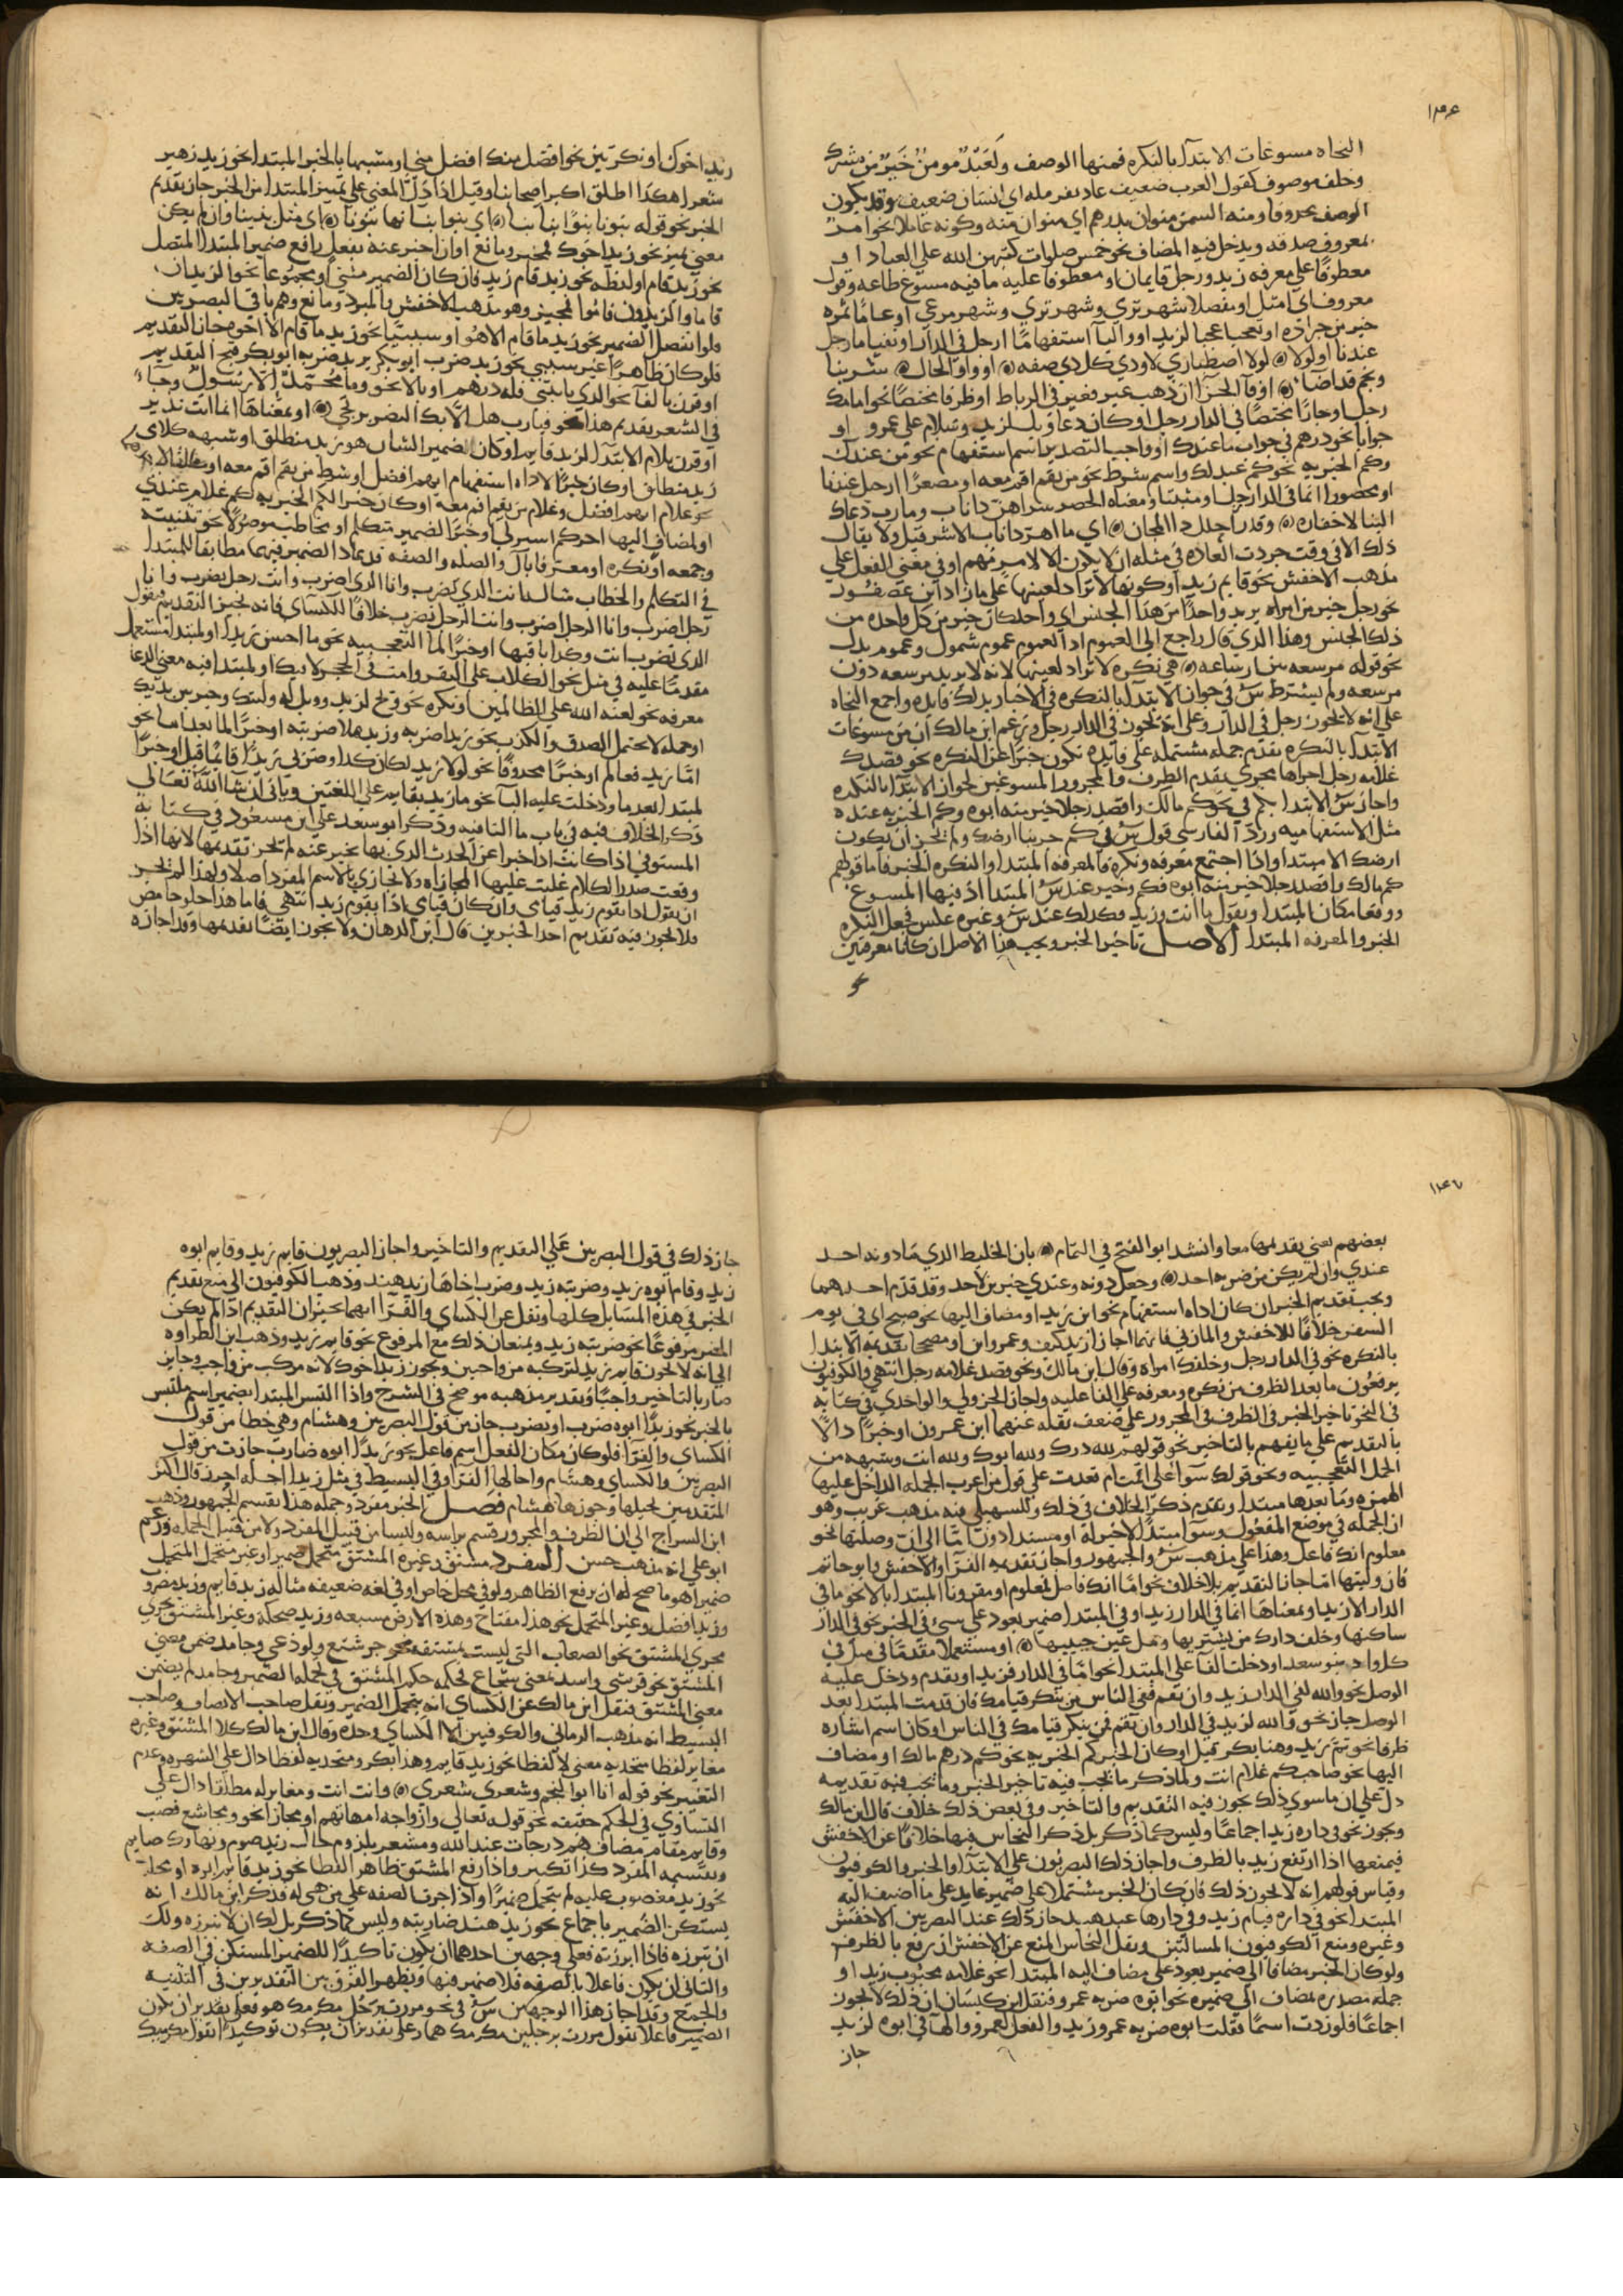 النحاه مسوغات الابتدآ بالنكره فمنها الوصف ولعبد مومن خير من مشرك
وخلف موصوف كقول العرب ضعيف عاد بقرمله اي انسان ضعيف وقد يكون
الوصف محدوفا ومنه السمن منوان بدرهم اي منوان منه وكونه عاملا نحو امر
بمعروف صدقه ويدخل فيه المضاف نحو خمس صلوات كتبهن الله علي العباد او
معطوفا علي معرفه زيد ورجل قايمان او معطوفا عليه ما فيه مسوغ طاعه وقول
معروف اي امثل او مفصلا شهر ثري وشهر تري وشهر مرعي او عاما تمره
خير من جراده او تعجبا عجبا لزيد او والبا استفهاما ارجل في الدار او نفيا ما رجل
عندنا او لولا لولا اصطباري لاودي كل دي مقه او واو الحال سرينا
ونجم قد اضا او فآ الجزا ان ذهب عير فعير في الرباط او ظرفا مختصا نحو امامك
رجل او جارا مختصا في الدار رجل او كان دعا ويل لزيد وسلام علي عمرو او
جوابا نحو درهم في جواب ما عندك او واجب التصدير اسم استفهام نحو من عندك
وكم الخبريه نحو كم عبد لك واسم شرط نحو من يقم اقم معه او مصغرا ارجيل عندنا
او محصورا انما في الدار رجل او مثبتا ومعناه الحصر شر اهر ذا ناب ومارب دعاك
الينا لا حفاوه وقدر احلك ذا المجاز اي ما اهر ذا ناب الا شر قيل ولا يقال
ذلك الا في وقت جرت العاده في مثله ان لا يكون الا لامر مهم او في معني الفعل علي
مذهب الاخفش نحو قايم زيد او كونها لا تراد لعينها علي ما زاد ابن عصفور
نحو رجل خير من امراه يريد واحدا من هذا الجنس اي واحد كان خير من كل واحده من
ذلك الجنس وهذا الذي قال راجع الي العموم اذ العموم عموم شمول وعموم بدل
نحو قوله مرسعه بين ارساغه هي نكره لا تراد لعينها لانه لا يريد مرسعه دون
مرسعه ولم يشترط س في جواز الابتدآ بالنكره في الاخبار بذلك فايده واجمع النحاه
علي انه لا يجوز رجل في الدار وعلي انه يجوز في الدار رجل وزعم ابن مالك ان من مسوغات
الابتدآ بالنكره تقدم جمله مشتمله علي فايده تكون خبرا عن النكره نحو قصدك
غلامه رجل اجراها مجري تقدم الظرف والمجرور المسوغين لجواز الابتدآ بالنكره
واجاز س الابتدآ بكم في نحو كم مالك واقصد رجلا خير منه ابوه وكم الخبريه عنده
مثل الاستفهاميه ورد الفارسي قول س في كم جريبا ارضك ولم يجز ان يكون
ارضك الا مبتدا واذا اجتمع معرفه ونكره فالمعرفه المبتدا والنكره الخبر فاما قولهم
كم مالك واقصد رجلا خير منه ابوه فكم وخير عند س المبتدا اذ فيها المسوغ
ووقعا مكان المبتدا وتقول ما انت وزيد فكدلك عند س وغيره عكس فجعل النكره
الخبر والمعرفه المبتدا الاصل تاخير الخبر ويجب هذا الاصل ان كانا معرفتين
زيد اخوك او نكرتين نحو افضل منك افضل مني او مشبها بالخبر المبتدا نحو زيد زهير
شعرا هكذا اطلق اكثر اصحابنا وقيل اذا دل المعني علي تمييز المبتدا من الخبر جاز تقديم
الخبر نحو قوله بنونا بنو ابنائنا اي بنوا بنائنا بنونا اي مثل بنينا وان لم يكن
معني يميز نحو زيد اخوك فمجيز ومانع او ان اخبر عنه بفعل رافع ضمير المبتدا المتصل
نحو زيد قام او لفظه نحو زيد قام زيد فان كان الضمير مثني او مجموعا نحو الزيدان
قاما والزيدون قاموا فمجيز وهو مذهب الاخفش والمبرد ومانع وهم باقي البصريين
فلو انفصل الضمير نحو زيد ما قام الا هو او سببيا نحو زيد ما قام الا اخوه جاز التقديم
فلو كان ظاهرا غير سببي نحو زيد ضرب ابو بكر يريد ضربه ابو بكر قبح التقديم
او قرن بالفآ نحو الذي ياتيني فله درهم او بالا نحو وما محمد الا رسول وجآ
في الشعر تقديم هذا نحو فيارب هل الا بك النصر يرتجي او بمعناها انما انت نذير
او قرن بلام الابتدآ لزيد قايم او كان ضمير الشان هو زيد منطلق او شبهه كلامي
زيد منطلق او كان خبرا لاداه استفهام ايهم افضل او شرط من يقم اقم معه او مضافا لاحدهما
نحو غلام ايهم افضل وغلام من يقم اقم معه او كان خبرا لكم الخبريه كم غلام عندي
وجمعه او نكره او معرفا بآل والصله والصفه قد عاد الضمير فيهما مطابقا للمبتدا
في التكلم والخطاب مثاله انت الذي تضرب وانا الذي اضرب وانت رجل يضرب وانا
رجل اضرب وانا الرجل اضرب وانت الرجل تضرب خلافا للكساي فانه يجيز التقديم فيقول
الذي يضرب انت وكذا باقيها او خبرا لما التعجبيه نحو ما احسن زيدا او لمبتدا مستعمل
مقدما عليه في مثل نحو الكلاب علي البقر وامت في الحجر لا فيك او لمبتدا فيه معني الدعا
معرفه نحو لعنه الله علي الظالمين او نكره نحو ترح لزيد وويل له ولبيك وخير بين يديك
او جمله لا تحتمل الصدق والكذب نحو زيد اضربه وزيد هلا ضربته او خبرا لما بعد اما نحو
اما زيد فعالم او خبرا محدوفا نحو لولا زيد لكان كدا وضربي زيدا قايما قبل او خبرا
لمبتدا بعد ما ودخلت عليه البآ نحو ما زيد بقايم علي اللغتين وياتي ان شا الله تعالي
ذكر الخلاف فيه في باب ما النافيه وذكر ابو سعد علي ابن مسعود في كتابه
المستوفي اذا كانت اذا خبرا عن الحدث الذي بها يخبر عنه لم يجز تقديمها لانها اذا
وقعت صدر الكلام غلبت عليها المجازاه ولا تجازي بالاسم المفرد اصلا ولهذا لم يجز
ان يقول اذا يقوم زيد قيامي وان كان قيامي اذا يقوم زيد انتهي فاما هذا حلو حامض
فلا يجوز فيه تقديم احد الخبرين قال ابن الدهان ولا يجوز ايضا تقدمها وقد اجازه
بعضهم يعني تقديمها معا وانشد ابو الفتح في التمام بان الخليط الذي ما دونه احد
عندي وان لم يكن من ضربه احد وجعل دونه وعندي خبرين لاحد وقد قدم احدهما
ويجب تقديم الخبر ان كان اداه استفهام نحو اين زيد او مضاف اليها نحو صبيح اي في يوم
السفر خلافا للاخفش والمازني فانهما اجازا زيد كيف وعمرو اين او مصححا تقديمه الابتدا
بالنكره نحو في الدار رجل وخلفك امراه وقال ابن مالك ونحو قصد غلامه رجل انتهي والكوفيون
يرفعون ما بعد الظرف من نكره ومعرفه علي الفاعليه واجاز الجزولي والواحدي في كتابه
في النحو تاخير الخبر في الظرف في المجرور علي ضعف نقله عنهما ابن عمرون او خبرا دالا
بالتقديم علي ما يفهم بالتاخير نحو قولهم لله درك ولله ابوك ولله انت وشبهه من
الجمل التعجبيه ونحو قولك سوآ علي اقمت ام قعدت علي قول من اعرب الجمله الداخل عليها
الهمزه وما بعدها مبتدا وتقدم ذكر الخلاف في ذلك وللسهيلي فيه مذهب غريب وهو
ان الجمله في موضع المفعول وسوآ مبتدا لا خبر له او مسندا دون اما الي ان وصلتها نحو
معلوم انك فاعل وهذا علي مذهب س والجمهور واجاز تقديمه الفرآ والاخفش وابو حاتم
فان وليتها اما جاز التقديم بلا خلاف نحو اما انك فاضل فمعلوم او مقرونا المبتدا بالا نحو ما في
الدار الا زيد او بمعناها انما في الدار زيد او في المبتدا ضمير يعود علي شي في الخبر نحو في الدار
ساكنها وخلف دارك من يشتريها وملء عين حبيبها او مستعملا مقدما في مثل في
كل واد بنو سعد او دخلت الفآ علي المبتدا نحو اما في الدار فزيد او يقدم ودخل عليه
الوصل نحو والله لفي الدار زيد وان تقم ففي الناس من ينكر قيامك فان قدمت المبتدا بعد
الوصل جاز نحو والله لزيد في الدار وان تقم فمن ينكر قيامك في الناس او كان اسم اشاره
ظرفا نحو ثم زيد وهنا بكر قيل او كان الخبر كم الخبريه نحو كم درهم مالك او مضاف
اليها نحو صاحب كم غلام انت ولما ذكر ما يجب فيه تاخير الخبر وما يجب فيه تقديمه
دل علي ان ما سوي ذلك يجوز فيه التقديم والتاخير وفي بعض ذلك خلاف قال ابن مالك
ويجوز نحو في داره زيد اجماعا وليس كما ذكر بل ذكر النحاس فيها خلافا عن الاخفش
فيمنعها اذا ارتفع زيد بالظرف واجاز ذلك البصريون علي الابتدآ والخبر والكوفيون
وقياس قولهم انه لا يجوز ذلك فان كان الخبر مشتملا علي ضمير عايد علي ما اضيف اليه
المبتدا نحو في داره قيام زيد وفي دارها عبد هند جاز ذلك عند البصريين الاخفش
وغيره ومنع الكوفيون المسالتين ونقل النحاس المنع عن الاخفش ان رفع بالظرف
ولو كان الخبر مضافا الي ضمير يعود علي مضاف اليه المبتدا نحو غلامه محبوب زيد او
جمله مصدره بمضاف الي ضميره نحو ابوه ضربه عمرو فنقل ابن كيسان ان ذلك لا يجوز
اجماعا فلو زدت اسما فقلت ابوه ضربه عمرو زيد والفعل لعمرو والهآ في ابوه لزيد
جاز
جاز ذلك في قول البصريين علي التقديم والتاخير واجاز البصريون قايم زيد وقايم ابوه
زيد وقام ابوه زيد وضربته زيد وضرب اخاها زيد هند وذهب الكوفيون الي منع تقديم
الخبر في هذه المسايل كلها ونقل عن الكساي والفرآ انهما يجيزان التقديم اذا لم يكن
المضمر مرفوعا نحو ضربته زيد ويمنعان ذلك مع المرفوع نحو قايم زيد وذهب ابن الطراوه
الي انه لا يجوز قايم زيد لتركبه من واجبين ويجوز زيد اخوك لانه مركب من واجب وجايز
صار بالتاخير واجبا وتقدير مذهبه موضح في الشرح واذا التبس المبتدا بضمير اسم ملتبس
بالخبر نحو زيدا ابوه ضرب او يضرب جاز من قول البصريين وهشام وهي خطا من قول
الكساي والفرآ فلو كان مكان الفعل اسم فاعل نحو زيدا ابوه ضارب جازت من قول
البصريين والكساي وهشام واحالها الفرآ وفي البسيط في مثل زيدا اجله احرز قال اكثر
المتقدمين يحيلها وجوزها هشام فصل الخبر مفرد وجمله هذا تقسيم الجمهور وذهب
ابن السراج الي ان الظرف والمجرور قسم براسه وليسا من قبيل المفرد ولا من قبيل الجمله وزعم
ابو علي انه مذهب حسن المفرد مشتق وغيره المشتق متحمل ضمير او غير متحمل المتحمل
ضميرا هو ما صح له ان يرفع الظاهر ولو في محل خاص او في لغه ضعيفه مثاله زيد قايم وزيد مضروب
وزيد افضل وغير المتحمل نحو هذا مفتاح وهذه الارض مسبعه وزيد ضحكة وغير المشتق يجري
مجري المشتق نحو الصعاب التي ليست بمشتقه نحو جرشع ولوذعي وجامد ضمن معني
المشتق نحو قرشي واسد بمعني شجاع فحكمه حكم المشتق في تحمله الضمير وجامد لم يضمن
معني المشتق فنقل ابن مالك عن الكساي انه يتحمل الضمير ونقل صاحب الانصاف وصاحب
البسيط انه مذهب الرماني والكوفيين الا الكساي وحده وقال ابن مالك كلا المشتق وغيره
مغاير لفظا متحد به معني لا لفظا نحو زيد قايم وهذا بكر ومتحد به لفظا دال علي الشهره وعدم
التغيير نحو قوله انا ابو النجم وشعري شعري وانت انت ومغاير له مطلقا دال علي
التساوي في الحكم حقيقه نحو قوله تعالي وازواجه امهاتهم او مجازا نحو ومجاشع قصب
وقايم مقام مضاف هم درجات عند الله ومشعر بلزوم حال زيد صوم ونهارك صايم
وتقسيمه المفرد كذا تكثير واذا رفع المشتق ظاهرا لفظا نحو زيد قايم ابوه او محلا
نحو زيد مغضوب عليه لم يتحمل ضميرا واذا جرت الصفه علي من هي له فذكر ابن مالك انه
يستكن الضمير باجماع نحو زيد هند ضاربته وليس كما ذكر بل لك ان لا تبرزه ولك
ان تبرزه فاذا ابرزته فعلي وجهين احدهما ان يكون تاكيدا للضمير المستكن في الصفه
والثاني ان يكون فاعلا بالصفه فلا ضمير فيها ويظهر الفرق بين التقديرين في التثنيه
والجمع وقد اجاز هذا الوجهين س في نحو مررت برجل مكرمك هو فعلي تقدير ان يكون
الضمير فاعلا تقول مررت برجلين مكرمك هما وعلي تقدير ان يكون توكيدا تقول مكرميك